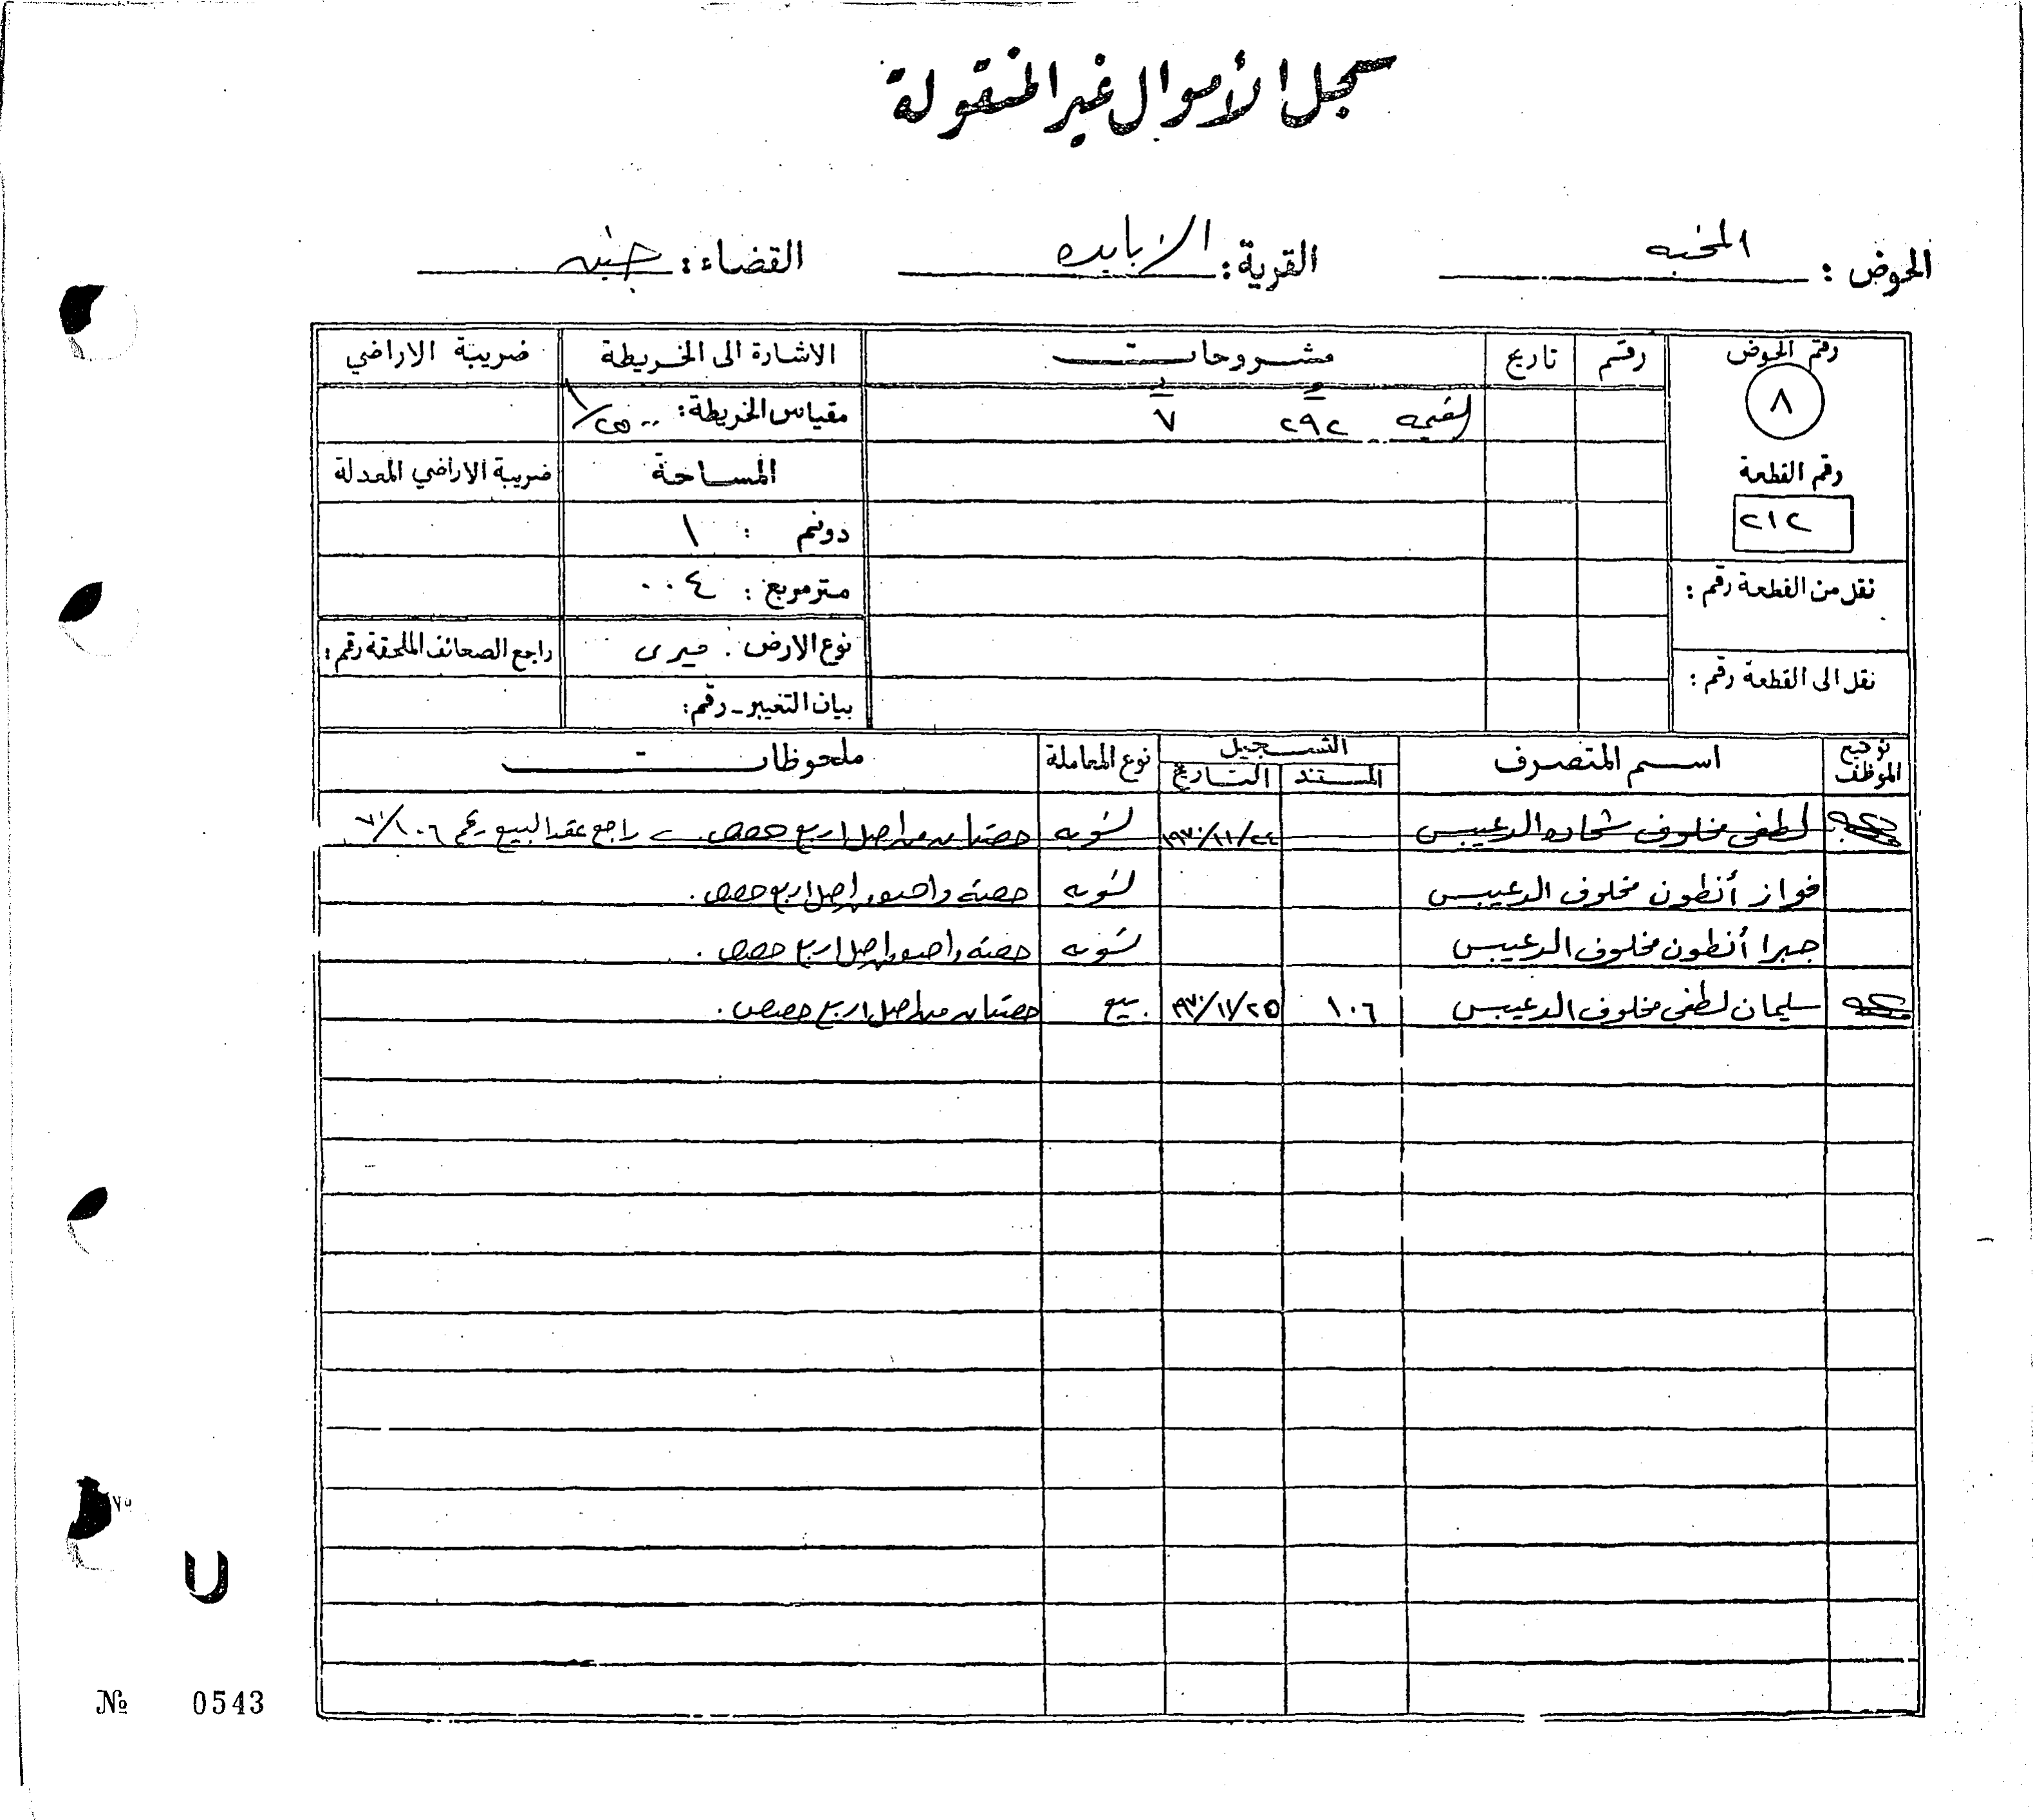 سجل الأموال غير المنقولة
الحوض : المخبه القرية : الزبابده القضاء : جنين
رقم الحوض رقم تاريخ مشروحات الاشارة الى الخريطة ضريبة الاراضي
٨
القيمه ٢٩٢ ٧ مقياس الخريطة : ١/٢٥٠٠
رقم القطعة المساحة ضريبة الاراضي المعدلة
٢١٢
دونم : ١
نقل من القطعة رقم : متر مربع : ٠٠٤
نوع الارض : ميري راجع الصحائف الملحقة رقم :
نقل الى القطعة رقم :
بيان التغيير - رقم :
توقيع الموظف اسم المتصرف التسجيل نوع المعاملة ملحوظات
المستند التاريخ
لطفي مخلوف شحاده الدعيبس ١٩٧٠/١١/٢٤ تسويه حصتان من اصل اربع حصص راجع عقد البيع رقم ٧١/١٠٦
فواز أنطون مخلوف الدعيبس تسويه حصة واحده من اصل اربع حصص .
جبرا أنطون مخلوف الدعيبس تسويه حصة واحده من اصل اربع حصص .
سليمان لطفي مخلوف الدعيبس ١٠٦ بيع حصتان من اصل اربع حصص .
U
№ 0543